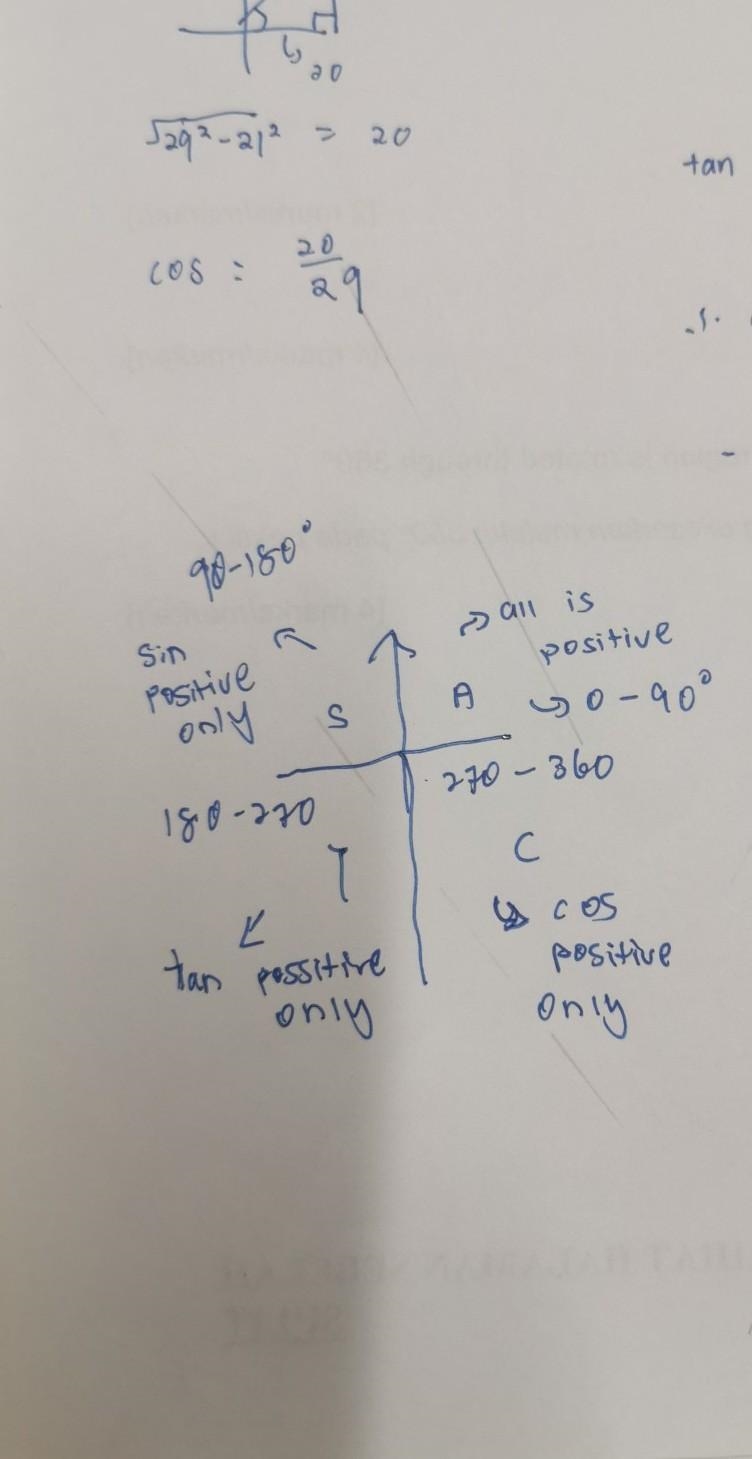 20
√29²-21² = 20
tan
cos = 20/29
90-180°
all is
positive
sin
positive
only
S
A
0-90°
270-360
180-270
T
C
cos
positive
only
tan possitive
only